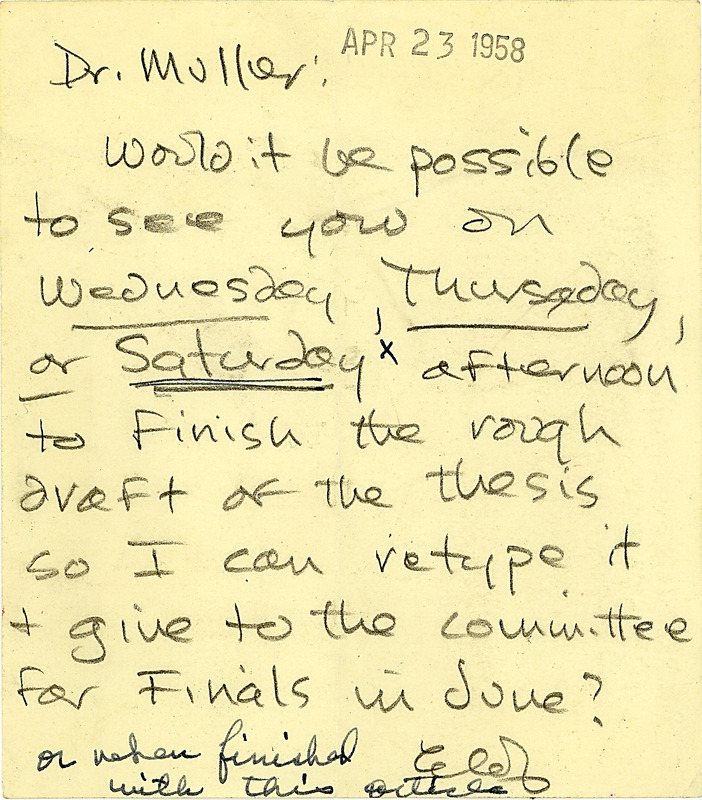 APR 23 1958
Dr. Muller:
Would it be possible
to see you on
Wednesday, Thursday,
or Saturday x afternoon
to finish the rough
draft of the thesis
so I can retype it
+ give to the committee
for Finals in June?
or when finished
with this article